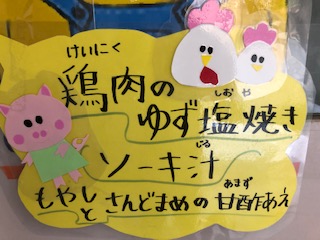 けいにく
鶏肉の
しお や
ゆず塩焼き
じる
ソーキ汁
あまず
もやしとさんどまめの甘酢あえ